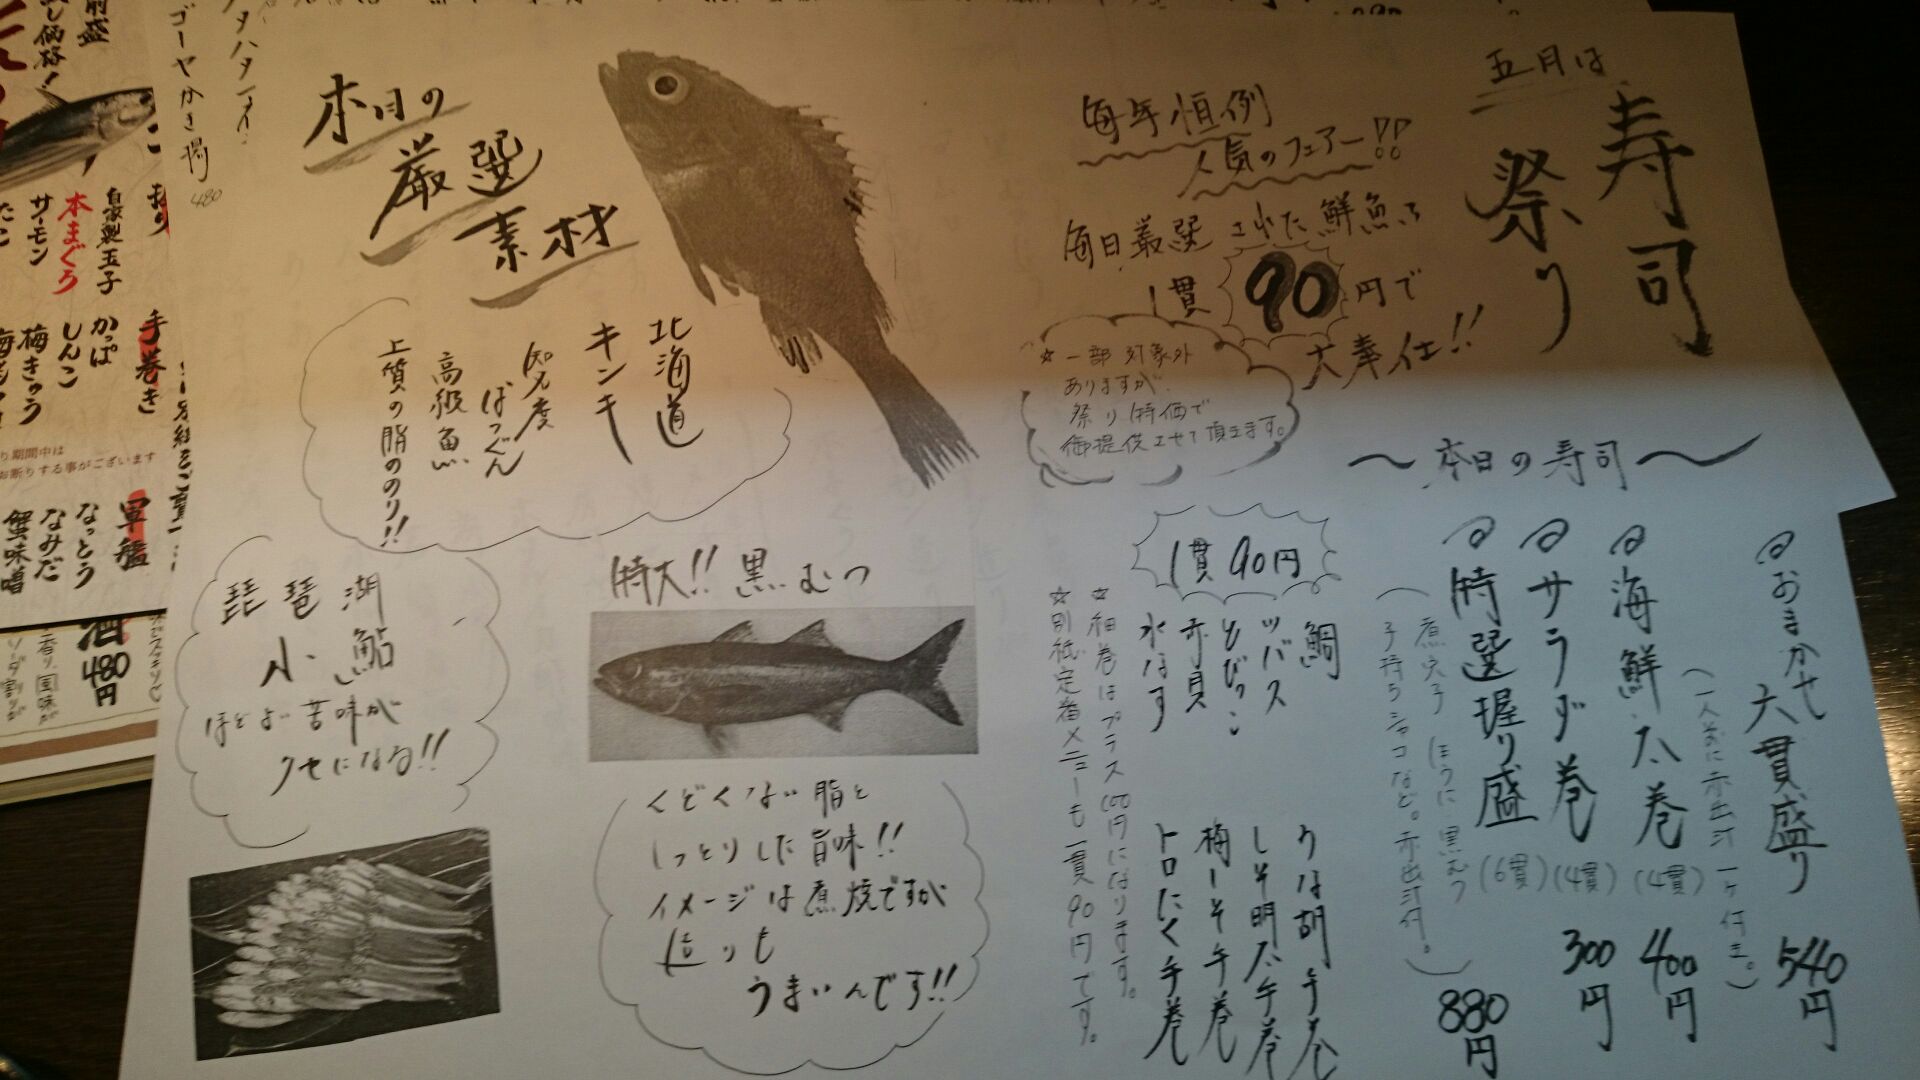 五月は
寿司
祭り
毎年恒例
人気のフェアー!!
毎日厳選された鮮魚を
1貫90円で
大奉仕!!
☆一部対象外
ありますが
祭り特価で
御提供させて頂きます。
〜本日の寿司〜
おまかせ六貫盛り 540円
(一人前に赤出汁一ヶ付き。)
海鮮太巻(4貫) 400円
サラダ巻(4貫) 300円
特選握り盛(6貫) 880円
(煮穴子 ほうに 黒むつ
子持ちシャコなど。赤出汁付。)
1貫90円
鯛
ツバス
とびっこ
赤貝
水なす
うな胡手巻
しそ明太手巻
梅しそ手巻
トロたく手巻
☆細巻はプラス100円になります。
☆別紙定番メニューも一貫90円です。
本日の
厳選
素材
北海道
キンキ
知名度
ばつぐん
高級魚
上質の脂ののり!!
琵琶湖
小鮎
ほどよい苦味が
クセになる!!
特大!!黒むつ
くどくない脂と
しっとりした旨味!!
イメージは煮焼ですが
造りも
うまいんです!!
ゴーヤかき揚 480
し価格!
自家製玉子
本まぐろ
サーモン
手巻き
かっぱ
しんこ
梅きゅう
り期間中は
お断りする事がございます
軍艦
なっとう
なみだ
蟹味噌
酒
480円